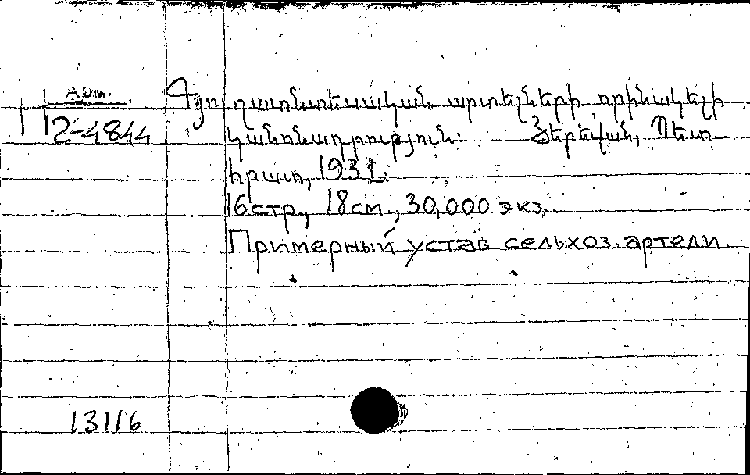 Арт.
12-4844
Գյուղատնտեսական արտելների օրինակելի
կանոնադրություն: Յերեվան, Պետ
հրատ, 1931.
16стр., 18см., 30,000 экз.
Примерный устав сельхоз. артели
13116